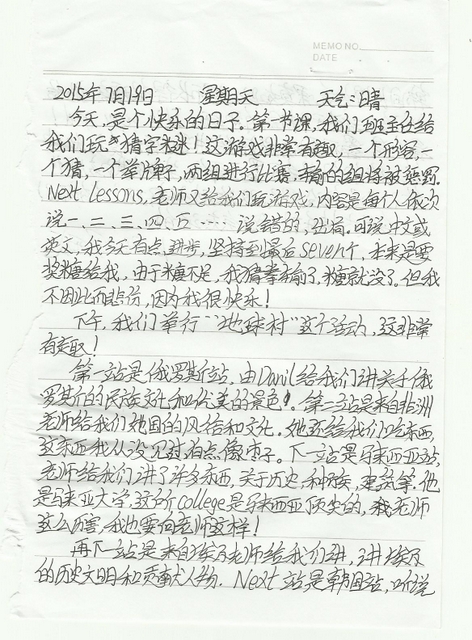 MEMO NO.
DATE
2015年7月19日 星期天 天气:晴
今天,是个快乐的日子。第一节课,我们班主任给
我们玩猜字谜!这游戏非常有趣,一个形容,一
个猜,一个举牌子,两组进行比赛,输的组将被惩罚.
Next Lessons,老师又给我们玩游戏,内容是每个人依次
说一、二、三、四、五…… 说错的,出局,可说中文或
英文,我今天有点进步,坚持到最后seven个,本来是要
奖糖给我,由于糖不足,我猜拳输了,糖就没了。但我
不因此而悲伤,因为我很快乐!
下午,我们举行"地球村"这个活动,这非常
有趣!
第一站是俄罗斯站,由Danil给我们讲关于俄
罗斯的民族文化和优美的景色!。第二站是来自非洲
老师给我们她国的风俗和文化。她还给我们吃东西,
这东西我从没见过,有点像枣子。下一站是马来西亚站,
老师给我们讲了许多东西,关于历史、种族、建筑等.他
是马来亚大学,这个college是马来西亚顶尖的,我老师
这么厉害,我也要向老师这样!
再下一站是来自埃及老师给我们讲,讲埃及
的历史文明和贡献人物. Next站是韩国站,听说